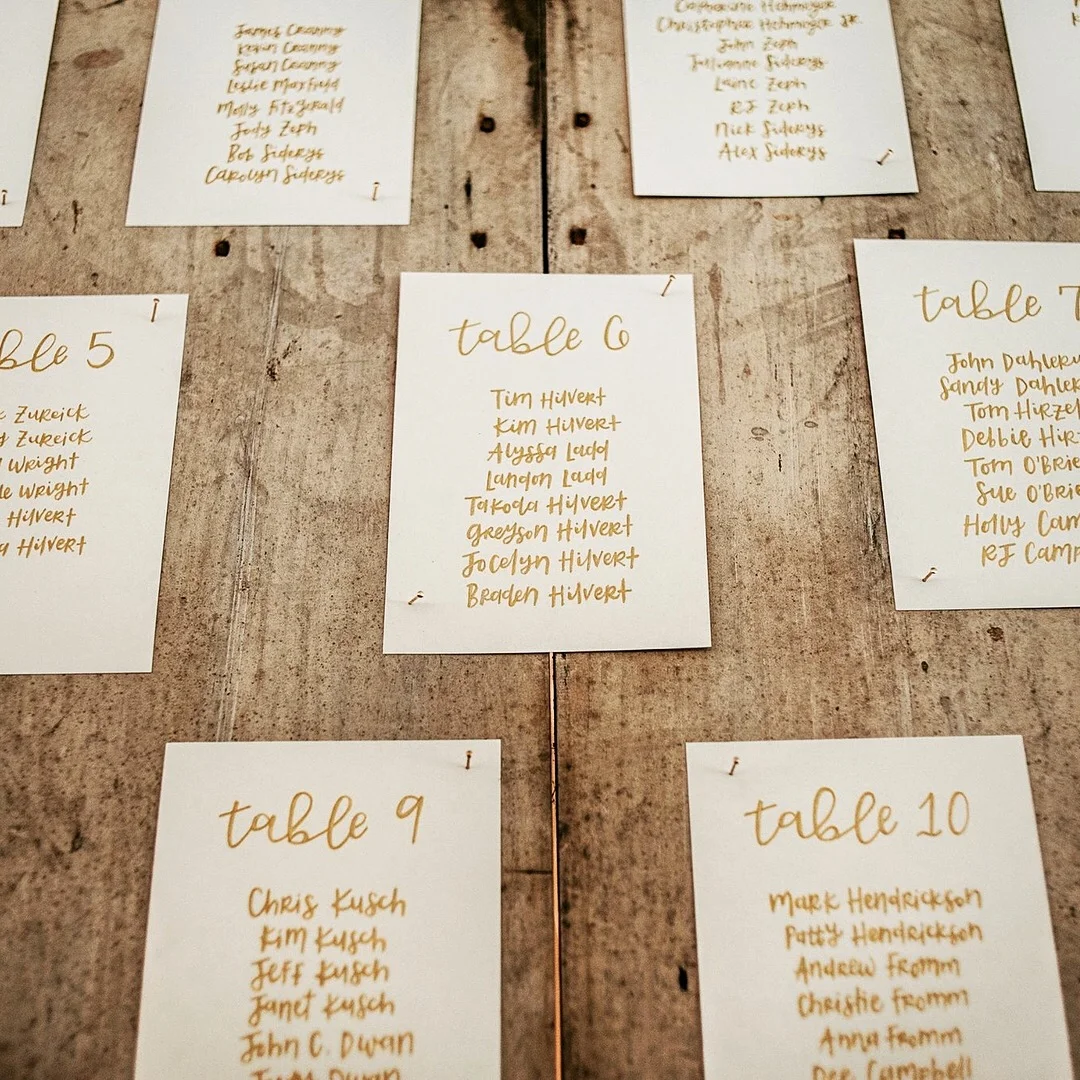 James Cranny
Kevin Cranny
Susan Cranny
Leslie Maxfield
Molly Fitzgerald
Jody Zeph
Bob Siderys
Carolyn Siderys
Christopher Hehmeyer JR.
John Zeph
Julianne Siderys
Laine Zeph
RJ Zeph
Nick Siderys
Alex Siderys
ble 5
Zureick
Zureick
Wright
Wright
Hilvert
Hilvert
table 6
Tim Hilvert
Kim Hilvert
Alyssa Ladd
Landon Ladd
Takoda Hilvert
Greyson Hilvert
Jocelyn Hilvert
Braden Hilvert
table 7
John Dahler
Sandy Dahler
Tom Hirzel
Debbie Hir
Tom O'Brie
Sue O'Brie
Holly Cam
RJ Camp
table 9
Chris Kusch
Kim Kusch
Jeff Kusch
Janet Kusch
John C. Dwan
Dwan
table 10
Mark Hendrickson
Patty Hendrickson
Andrew Fromm
Christie Fromm
Anna Fromm
Dee Campbell